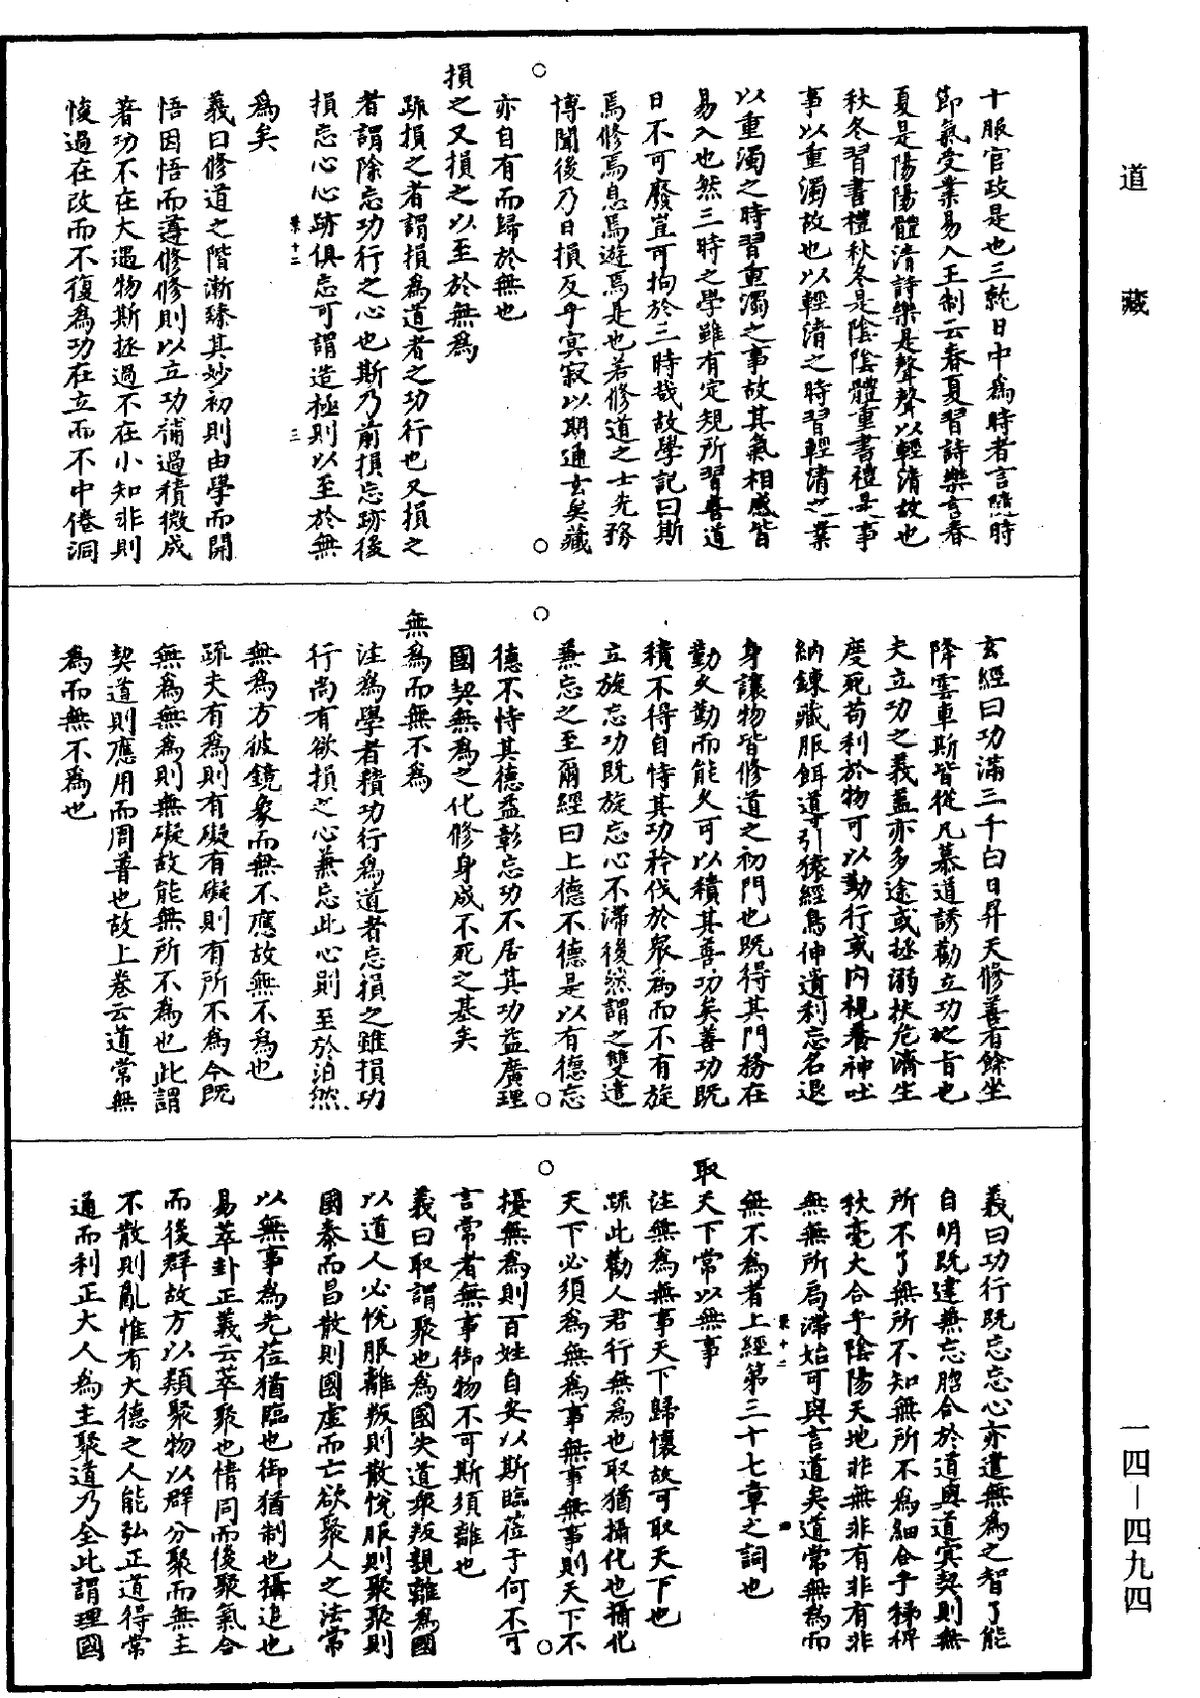 道藏
十服官政是也三就日中為時者言隨時
節氣受業易入王制云春夏習詩樂言春
夏是陽陽體清詩樂是聲聲以輕清故也
秋冬習書禮秋冬是陰陰體重書禮是事
事以重濁故也以輕清之時習輕清之業
以重濁之時習重濁之事故其氣相感皆
易入也然三時之學雖有定規所習善道
日不可廢豈可拘於三時哉故學記曰斯
焉修焉息焉遊焉是也若修道之士先務
博聞後乃日損反乎冥寂以期通玄矣藏
亦自有而歸於無也
損之又損之以至於無為
疏損之者謂損為道者之功行也又損之
者謂除忘功行之心也斯乃前損忘跡後
損忘心心跡俱忘可謂造極則以至於無
為矣
義曰修道之階漸臻其妙初則由學而開
悟因悟而遵修修則以立功補過積微成
著功不在大遇物斯拯過不在小知非則
悛過在改而不復為功在立而不中倦洞
玄經曰功滿三千白日昇天修善有餘坐
降雲車斯皆從凡慕道誘勸立功之旨也
夫立功之義蓋亦多途或拯溺扶危濟生
度死苟利於物可以勤行或內視養神吐
納鍊藏服餌導引猿經鳥伸遺利忘名退
身讓物皆修道之初門也既得其門務在
勤久勤而能久可以積其善功矣善功既
積不得自恃其功矜伐於衆為而不有旋
立旋忘功既旋忘心不滯後然謂之雙遣
兼忘之至爾經曰上德不德是以有德忘
德不恃其德益彰忘功不居其功益廣理
國契無為之化修身成不死之基矣
無為而無不為
注為學者積功行為道者忘損之雖損功
行尚有欲損之心兼忘此心則至於泊然
無為方彼鏡象而無不應故無不為也
疏夫有為則有礙有礙則有所不為今既
無為無為則無礙故能無所不為也此謂
契道則應用而周普也故上卷云道常無
為而無不為也
義曰功行既忘忘心亦遣無為之智了能
自明既達兼忘脗合於道與道冥契則無
所不了無所不知無所不為細合乎稊稗
秋毫大合乎陰陽天地非無非有非有非
無無所局滯始可與言道矣道常無為而
無不為者上經第三十七章之詞也
取天下常以無事
注無為無事天下歸懷故可取天下也
疏此勸人君行無為也取猶攝化也攝化
天下必須為無為事無事無事則天下不
擾無為則百姓自安以斯臨莅于何不可
言常者無事御物不可斯須離也
義曰取謂聚也為國失道衆叛親離為國
以道人必悅服離叛則散悅服則聚聚則
國泰而昌散則國虛而亡欲聚人之法常
以無事為先莅猶臨也御猶制也攝追也
易萃卦正義云萃聚也情同而後聚氣合
而後群故方以類聚物以群分聚而無主
不散則亂惟有大德之人能弘正道得常
通而利正大人為主聚道乃全此謂理國
一四—四九四